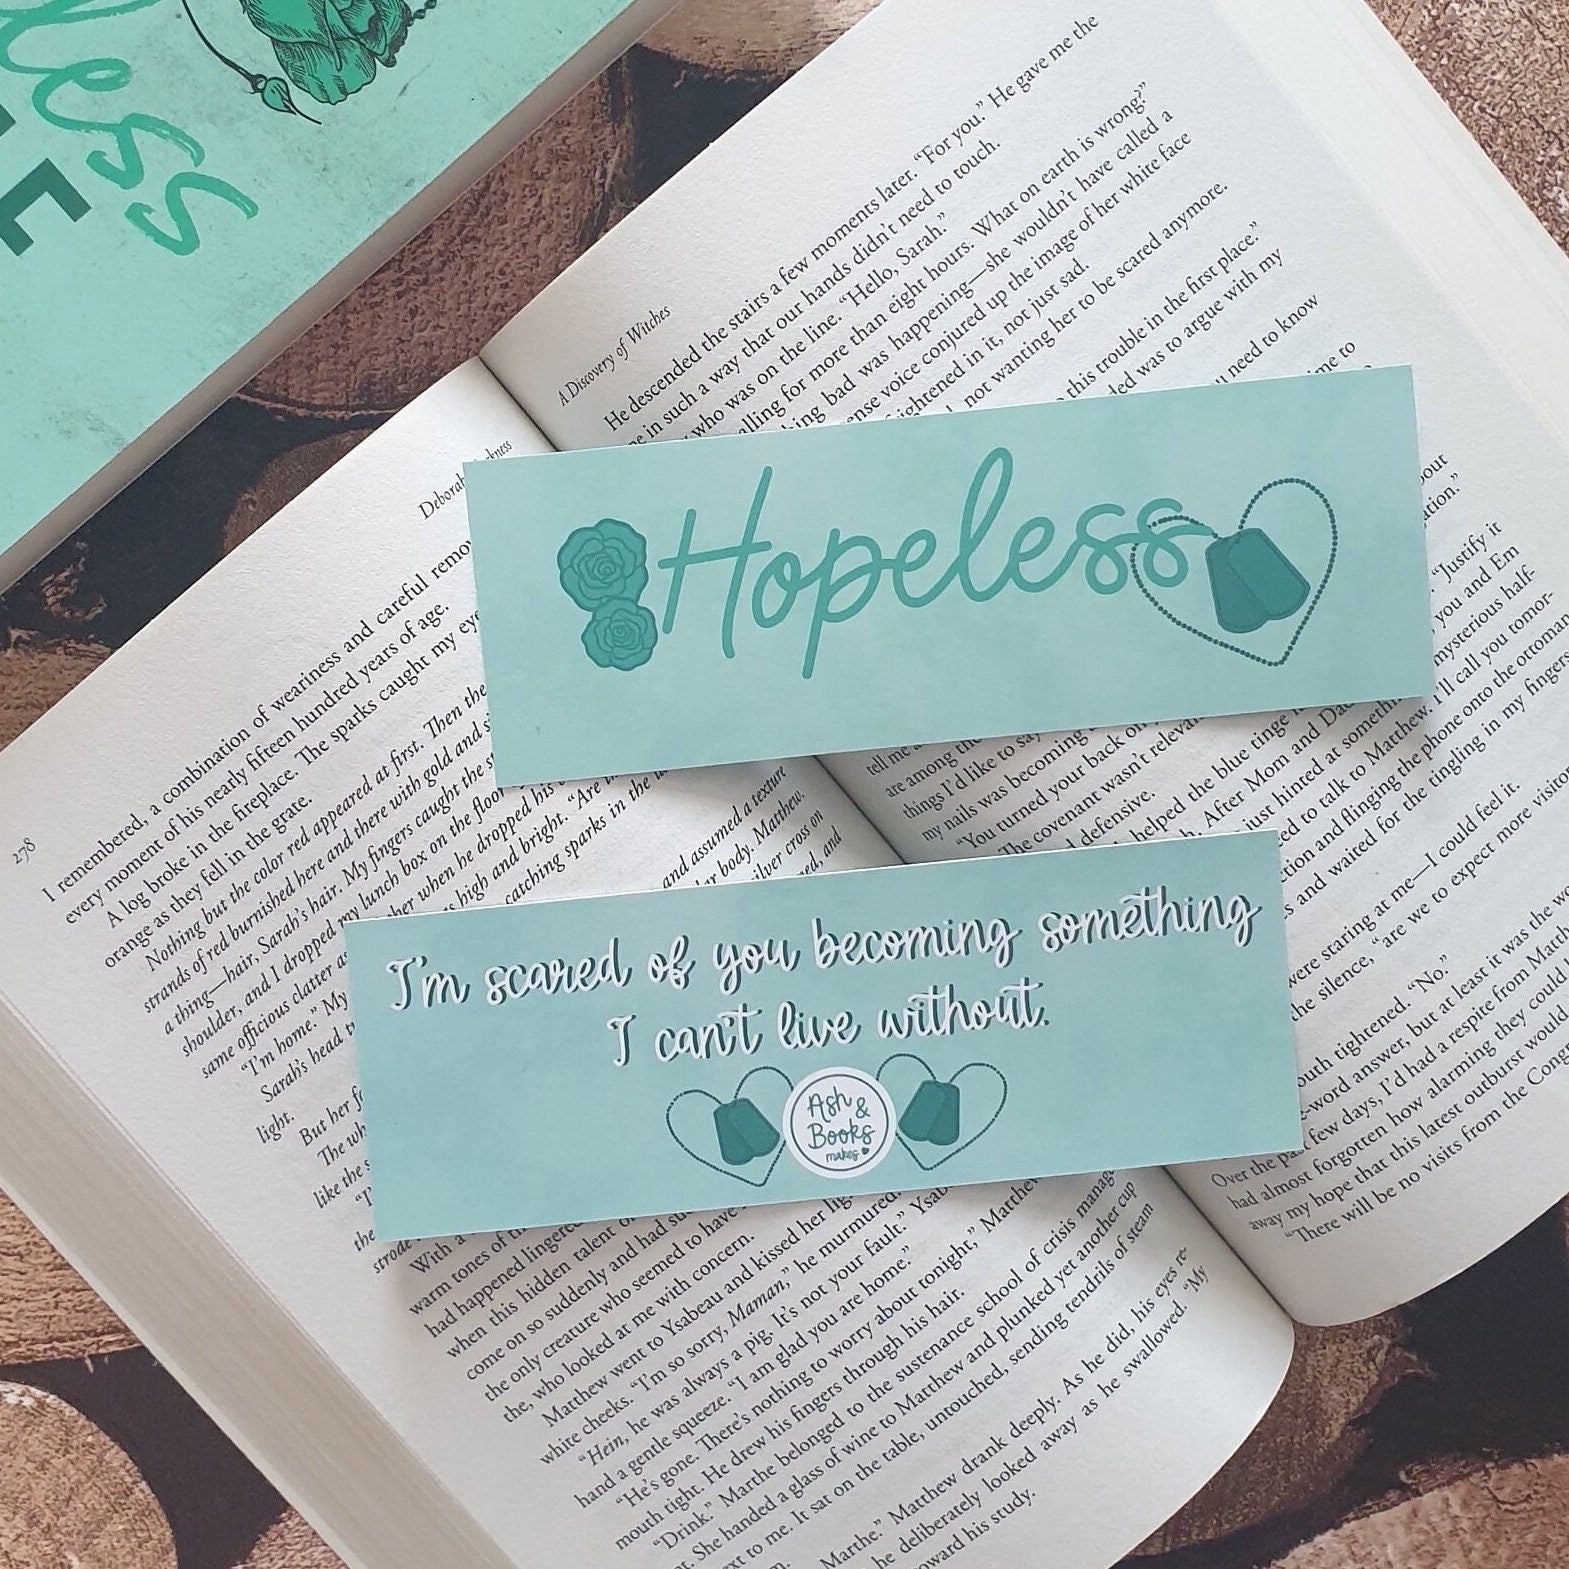 ess
278
Deborah
I remembered, a combination of weariness and careful remo
every moment of his nearly fifteen hundred years of age.
A log broke in the fireplace. The sparks caught my eye
orange as they fell in the grate.
Nothing but the color red appeared at first. Then the
strands of red burnished here and there with gold and si
a thing—hair, Sarah's hair. My fingers caught the st
shoulder, and I dropped my lunch box on the floor
same officious clatter as
when he dropped his
"I'm home." My
high and bright. "Are
Sarah's head
catching sparks in the
light.
and assumed a texture
body. Matthew.
silver cross on
and
But her
The wh
like the s
the
strode
With a
warm tones of
had happened lingered
when this hidden talent
come on so suddenly and had su
the only creature who seemed to have
the, who looked at me with concern.
Matthew went to Ysabeau and kissed her lig
white cheeks. "I'm so sorry, Maman," he murmured
"Hein, he was always a pig. It's not your fault." Ysab
hand a gentle squeeze. "I am glad you are home."
"He's gone. There's nothing to worry about tonight," Matthew
mouth tight. He drew his fingers through his hair.
"Drink." Marthe belonged to the sustenance school of crisis manag
She handed a glass of wine to Matthew and plunked yet another cup
to me. It sat on the table, untouched, sending tendrils of steam
Marthe." Matthew drank deeply. As he did, his eyes re-
he deliberately looked away as he swallowed. "My
his study.
A Discovery of Witches
He descended the stairs a few moments later. "For you." He gave me the
in such a way that our hands didn't need to touch.
who was on the line. "Hello, Sarah."
alling for more than eight hours. What on earth is wrong?"
hing bad was happening—she wouldn't have called a
ense voice conjured up the image of her white face
ightened in it, not just sad.
not wanting her to be scared anymore.
this trouble in the first place."
ded was to argue with my
need to know
time to
about
ation."
"Justify it
you and Em
mysterious half-
I'll call you tomor-
tell me
are among the
things I'd like to say
my nails was becoming
"You turned your back on
The covenant wasn't releva
defensive.
helped the blue tinge
After Mom and Da
just hinted at somethi
to talk to Matthew.
ction and flinging the phone onto the ottoman
s and waited for the tingling in my fingers
were staring at me—I could feel it.
the silence, "are we to expect more visitor
outh tightened. "No."
-word answer, but at least it was the wo
Over the past few days, I'd had a respite from Matth
had almost forgotten how alarming they could
away my hope that this latest outburst would
"There will be no visits from the Cong
Hopeless
I'm scared of you becoming something
I can't live without.
Ash &
Books
makes